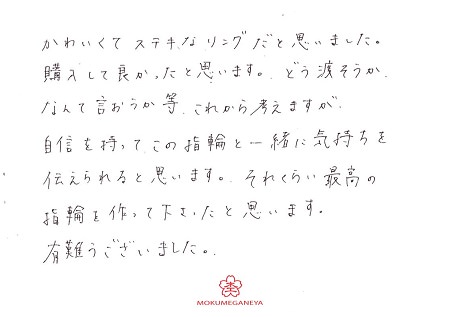 かわいくてステキなリングだと思いました。
購入して良かったと思います。どう渡そうか、
なんて言おうか等、これから考えますが、
自信を持って、この指輪と一緒に気持ちを
伝えられると思います。それくらい最高の
指輪を作って下さったと思います。
有難うございました。
MOKUMEGANEYA